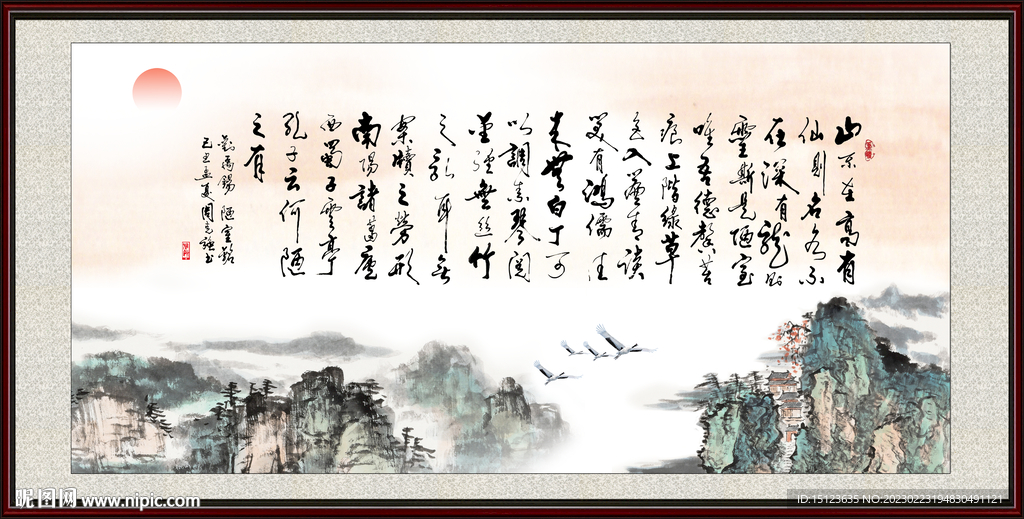 山不在高有
仙則名水不
在深有龍則
靈斯是陋室
唯吾德馨苔
痕上階綠草
色入簾青談
笑有鴻儒往
来無白丁可
以調素琴閱
金經無絲竹
之亂耳無
案牘之勞形
南陽諸葛廬
西蜀子雲亭
孔子云何陋
之有
劉禹錫 陋室銘
己丑孟夏周
昵图网 www.nipic.com
ID:15123635 NO:20230223194830491121